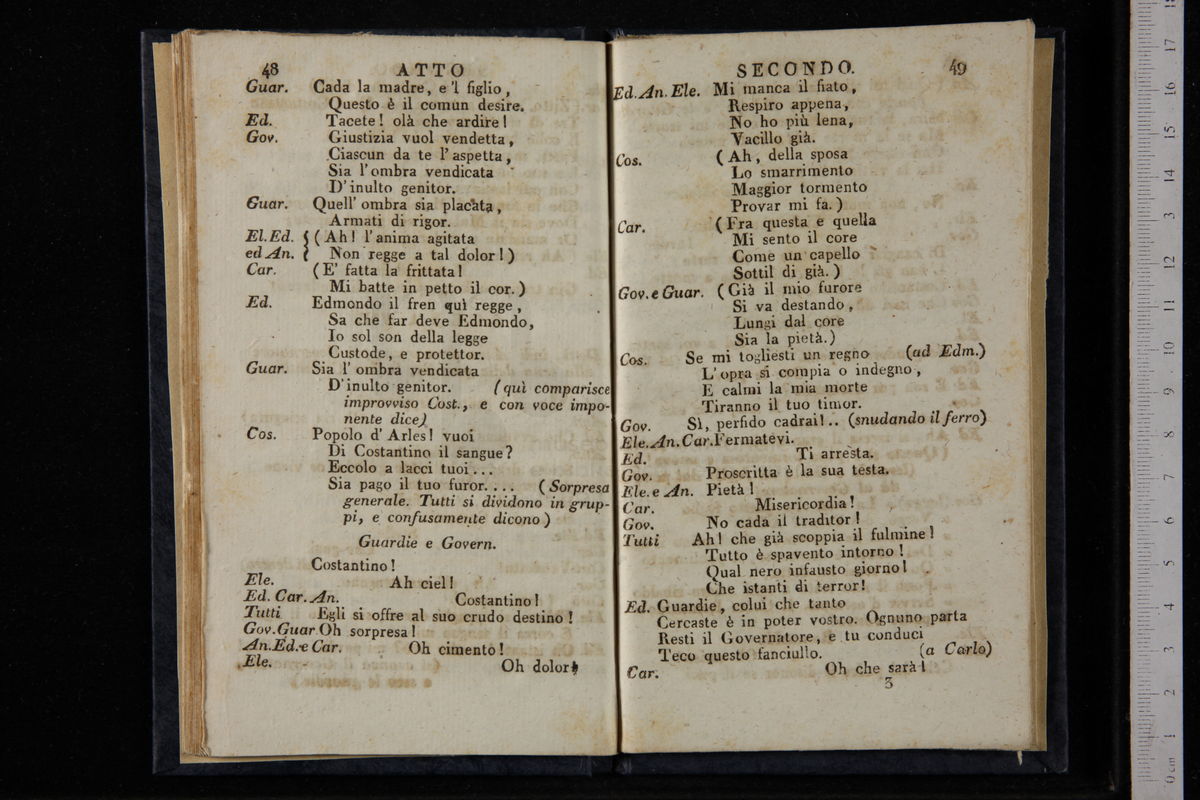 48 ATTO
Guar. Cada la madre, e 'l figlio,
Questo è il comun desire.
Ed. Tacete! olà che ardire!
Gov. Giustizia vuol vendetta,
Ciascun da te l'aspetta,
Sia l'ombra vendicata
D'inulto genitor.
Guar. Quell' ombra sia placata,
Armati di rigor.
El.Ed. { ( Ah! l'anima agitata
ed An. { Non regge a tal dolor! )
Car. ( E' fatta la frittata!
Mi batte in petto il cor. )
Ed. Edmondo il fren quì regge,
Sa che far deve Edmondo,
Io sol son della legge
Custode, e protettor.
Guar. Sia l' ombra vendicata
D'inulto genitor. (quì comparisce
improvviso Cost., e con voce impo-
nente dice)
Cos. Popolo d' Arles! vuoi
Di Costantino il sangue?
Eccolo a lacci tuoi...
Sia pago il tuo furor.... (Sorpresa
generale. Tutti si dividono in grup-
pi, e confusamente dicono)
Guardie e Govern.
Costantino!
Ele. Ah ciel!
Ed. Car. An. Costantino!
Tutti Egli si offre al suo crudo destino!
Gov.Guar Oh sorpresa!
An.Ed.e Car. Oh cimento!
Ele. Oh dolor!
SECONDO. 49
Ed.An. Ele. Mi manca il fiato,
Respiro appena,
No ho più lena,
Vacillo già.
Cos. ( Ah, della sposa
Lo smarrimento
Maggior tormento
Provar mi fa. )
Car. ( Fra questa e quella
Mi sento il core
Come un capello
Sottil di già. )
Gov. e Guar. ( Già il mio furore
Si va destando,
Lungi dal core
Sia la pietà.)
Cos. Se mi togliesti un regno (ad Edm.)
L'opra si compia o indegno,
E calmi la mia morte
Tiranno il tuo timor.
Gov. Sì, perfido cadrai!.. (snudando il ferro)
Ele.An.Car.Fermatevi.
Ed. Ti arresta.
Gov. Proscritta è la sua testa.
Ele. e An. Pietà!
Car. Misericordia!
Gov. No cada il traditor!
Tutti Ah! che già scoppia il fulmine!
Tutto è spavento intorno!
Qual nero infausto giorno!
Che istanti di terror!
Ed. Guardie, colui che tanto
Cercaste è in poter vostro. Ognuno parta
Resti il Governatore, e tu conduci
Teco questo fanciullo. (a Carlo)
Car. Oh che sarà!
3